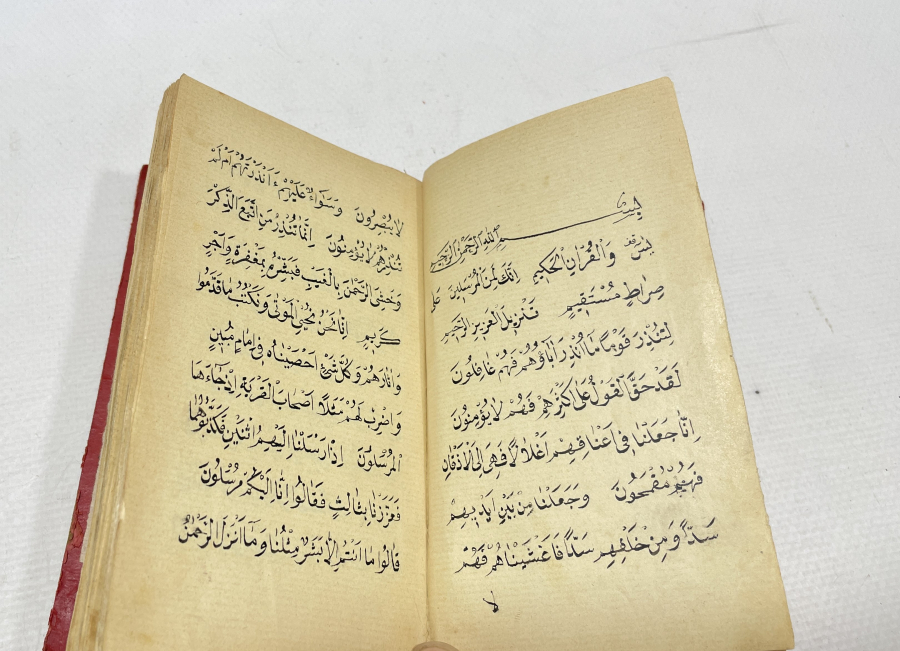 بسم الله الرحمن الرحيم
يس وَالْقُرْانِ الْحَكِيمِ اِنَّكَ لَمِنَ الْمُرْسَلِينَ عَلٰى
صِرَاطٍ مُسْتَقِيمٍ تَنْزِيلَ الْعَزِيزِ الرَّحِيمِ
لِتُنْذِرَ قَوْمًا مَا اُنْذِرَ اٰبَاؤُهُمْ فَهُمْ غَافِلُونَ
لَقَدْ حَقَّ الْقَوْلُ عَلٰى اَكْثَرِهِمْ فَهُمْ لَا يُؤْمِنُونَ
اِنَّا جَعَلْنَا فِى اَعْنَاقِهِمْ اَغْلَالًا فَهِىَ اِلَى الْاَذْقَانِ
فَهُمْ مُقْمَحُونَ وَجَعَلْنَا مِنْ بَيْنِ اَيْدِيهِمْ
سَدًّا وَمِنْ خَلْفِهِمْ سَدًّا فَاَغْشَيْنَاهُمْ فَهُمْ
لا
لَا يُبْصِرُونَ وَسَوَاءٌ عَلَيْهِمْ ءَاَنْذَرْتَهُمْ اَمْ لَمْ
تُنْذِرْهُمْ لَا يُؤْمِنُونَ اِنَّمَا تُنْذِرُ مَنِ اتَّبَعَ الذِّكْرَ
وَخَشِىَ الرَّحْمٰنَ بِالْغَيْبِ فَبَشِّرْهُ بِمَغْفِرَةٍ وَاَجْرٍ
كَرِيمٍ اِنَّا نَحْنُ نُحْيِى الْمَوْتٰى وَنَكْتُبُ مَا قَدَّمُوا
وَاٰثَارَهُمْ وَكُلَّ شَىْءٍ اَحْصَيْنَاهُ فِى اِمَامٍ مُبِينٍ
وَاضْرِبْ لَهُمْ مَثَلًا اَصْحَابَ الْقَرْيَةِ اِذْ جَاءَهَا
الْمُرْسَلُونَ اِذْ اَرْسَلْنَا اِلَيْهِمُ اثْنَيْنِ فَكَذَّبُوهُمَا
فَعَزَّزْنَا بِثَالِثٍ فَقَالُوا اِنَّا اِلَيْكُمْ مُرْسَلُونَ
قَالُوا مَا اَنْتُمْ اِلَّا بَشَرٌ مِثْلُنَا وَمَا اَنْزَلَ الرَّحْمٰنُ